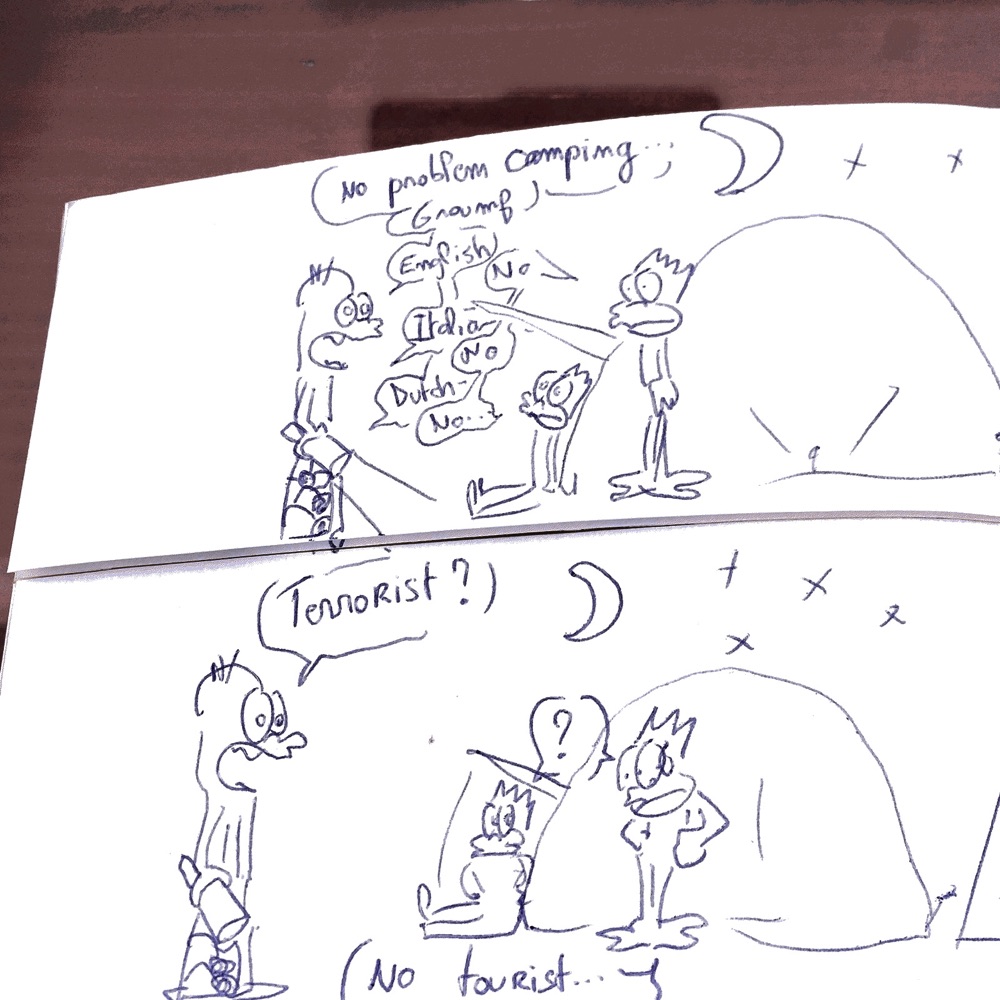 No problem camping...
Groumf
English
No
Italia-
No
Dutch-
No...
Terrorist?
?
No tourist...